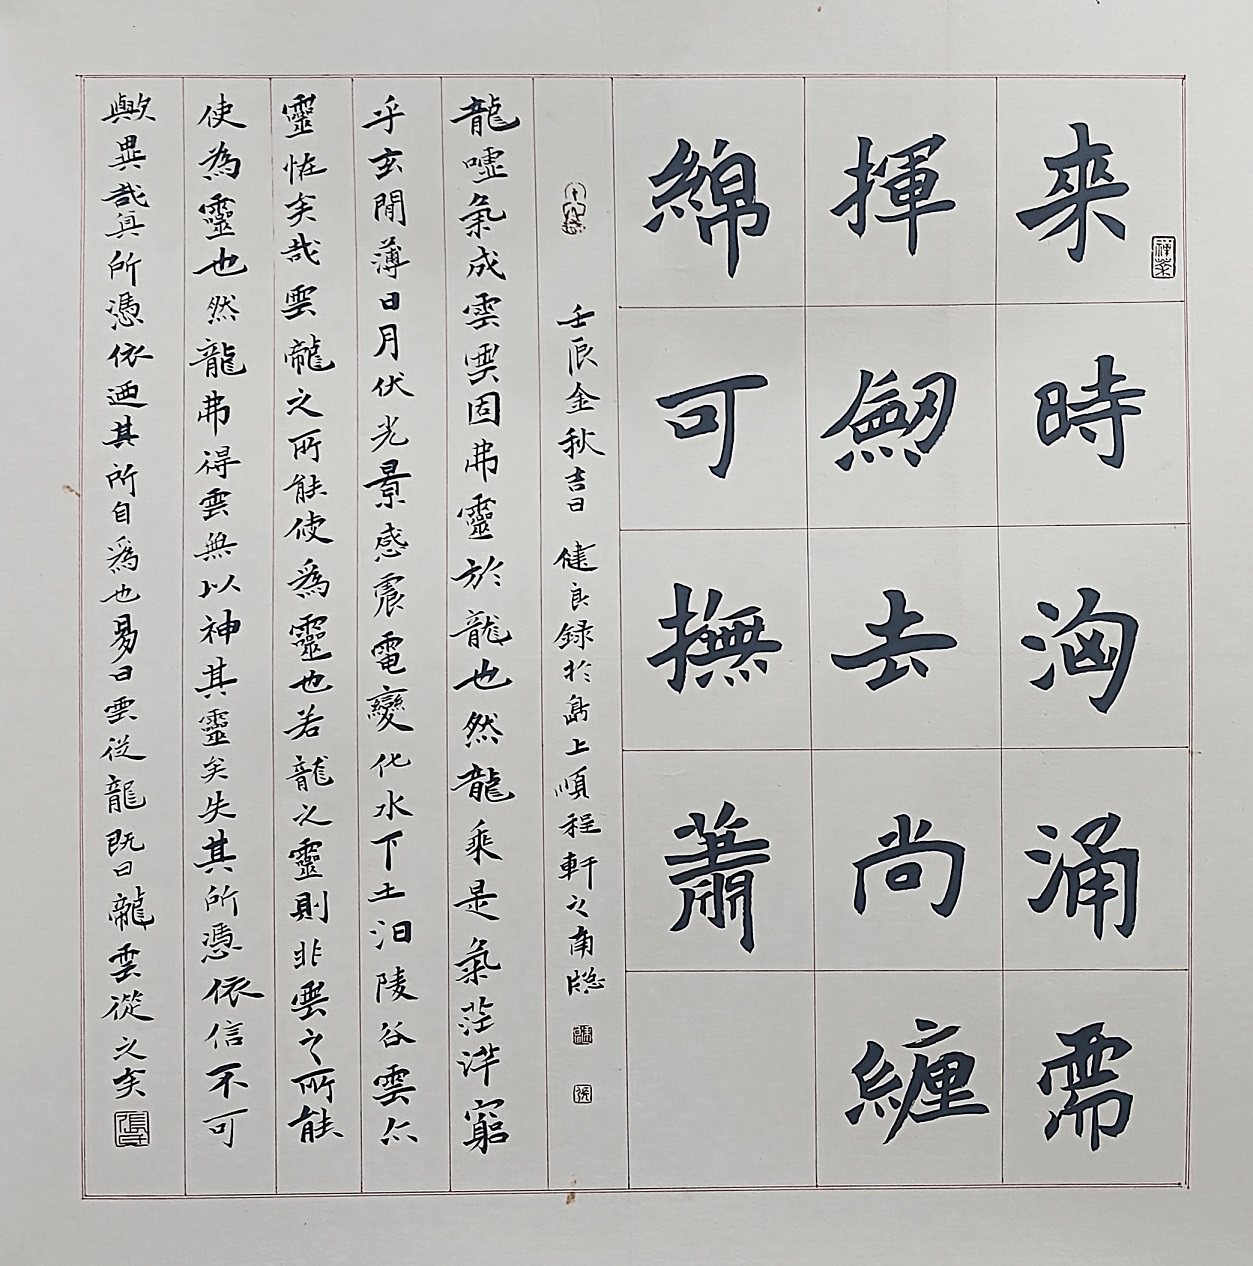 来時洶涌需
揮劒去尚纏
綿可撫蕭
壬辰金秋吉日 健良録於島上順程軒之南牎
龍嘘氣成雲雲固弗靈於龍也然龍乘是氣茫洋窮
乎玄間薄日月伏光景感震電變化水下土汩陵谷雲亦
靈恠矣哉雲龍之所能使為靈也若龍之靈則非雲之所能
使為靈也然龍弗得雲無以神其靈矣失其所憑依信不可
歟異哉其所憑依迺其所自為也易曰雲從龍既曰龍雲從之矣